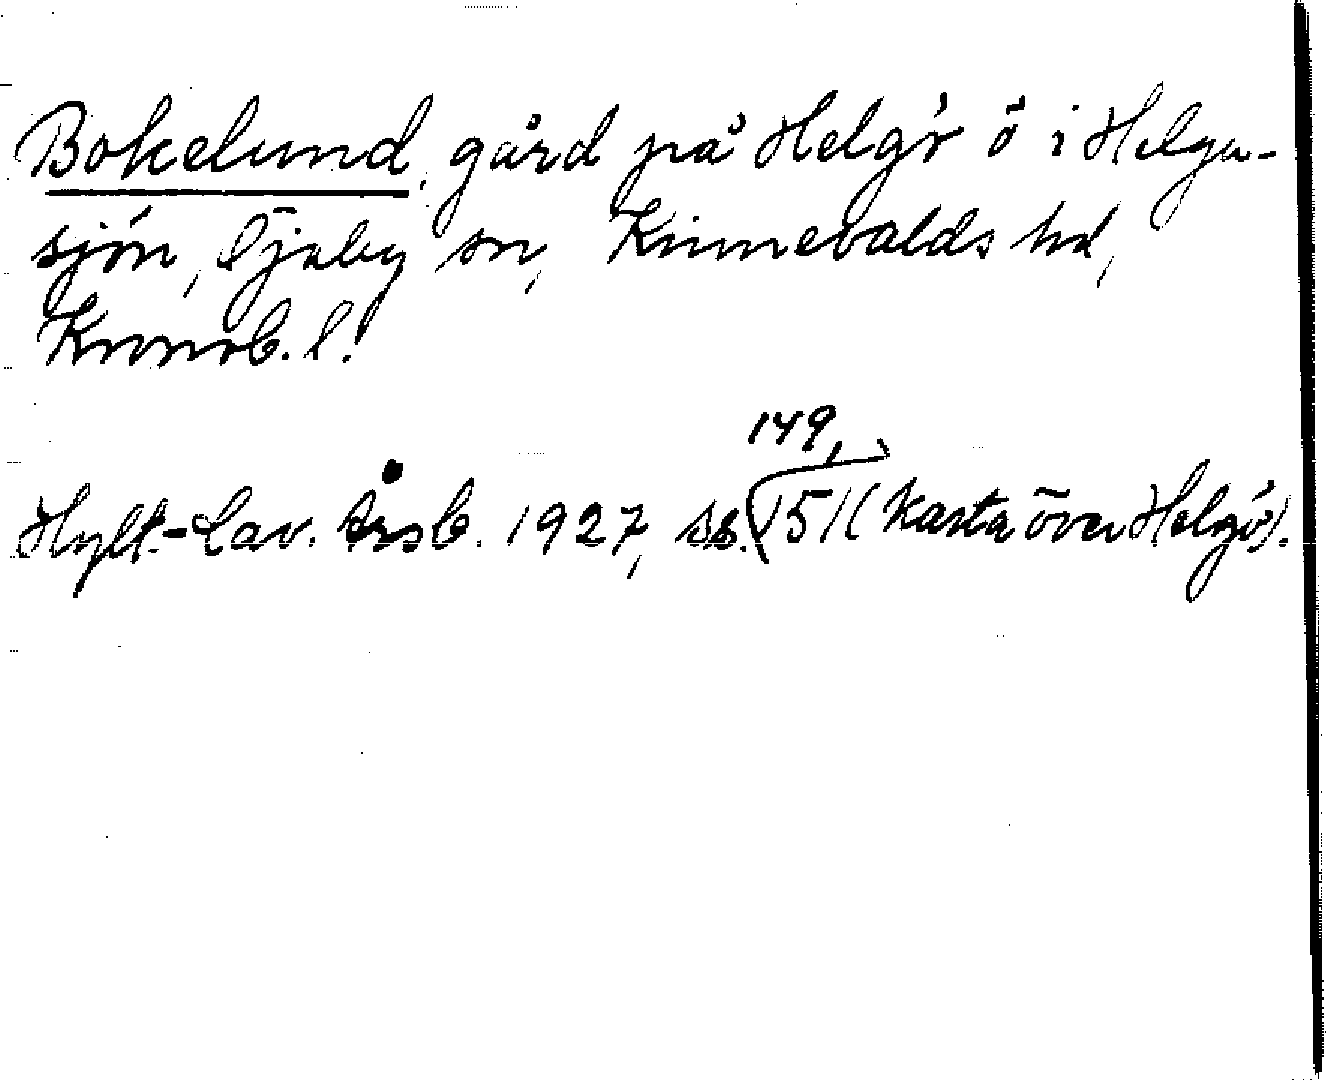 Bokelund, gård på Helgö ö i Helga-
sjön, Öjaby sn, Kinnevalds hd,
Kronob. l.
149,
Hylt.-Cav. Årsb. 1927, ss. 151 (Karta över Helgö).